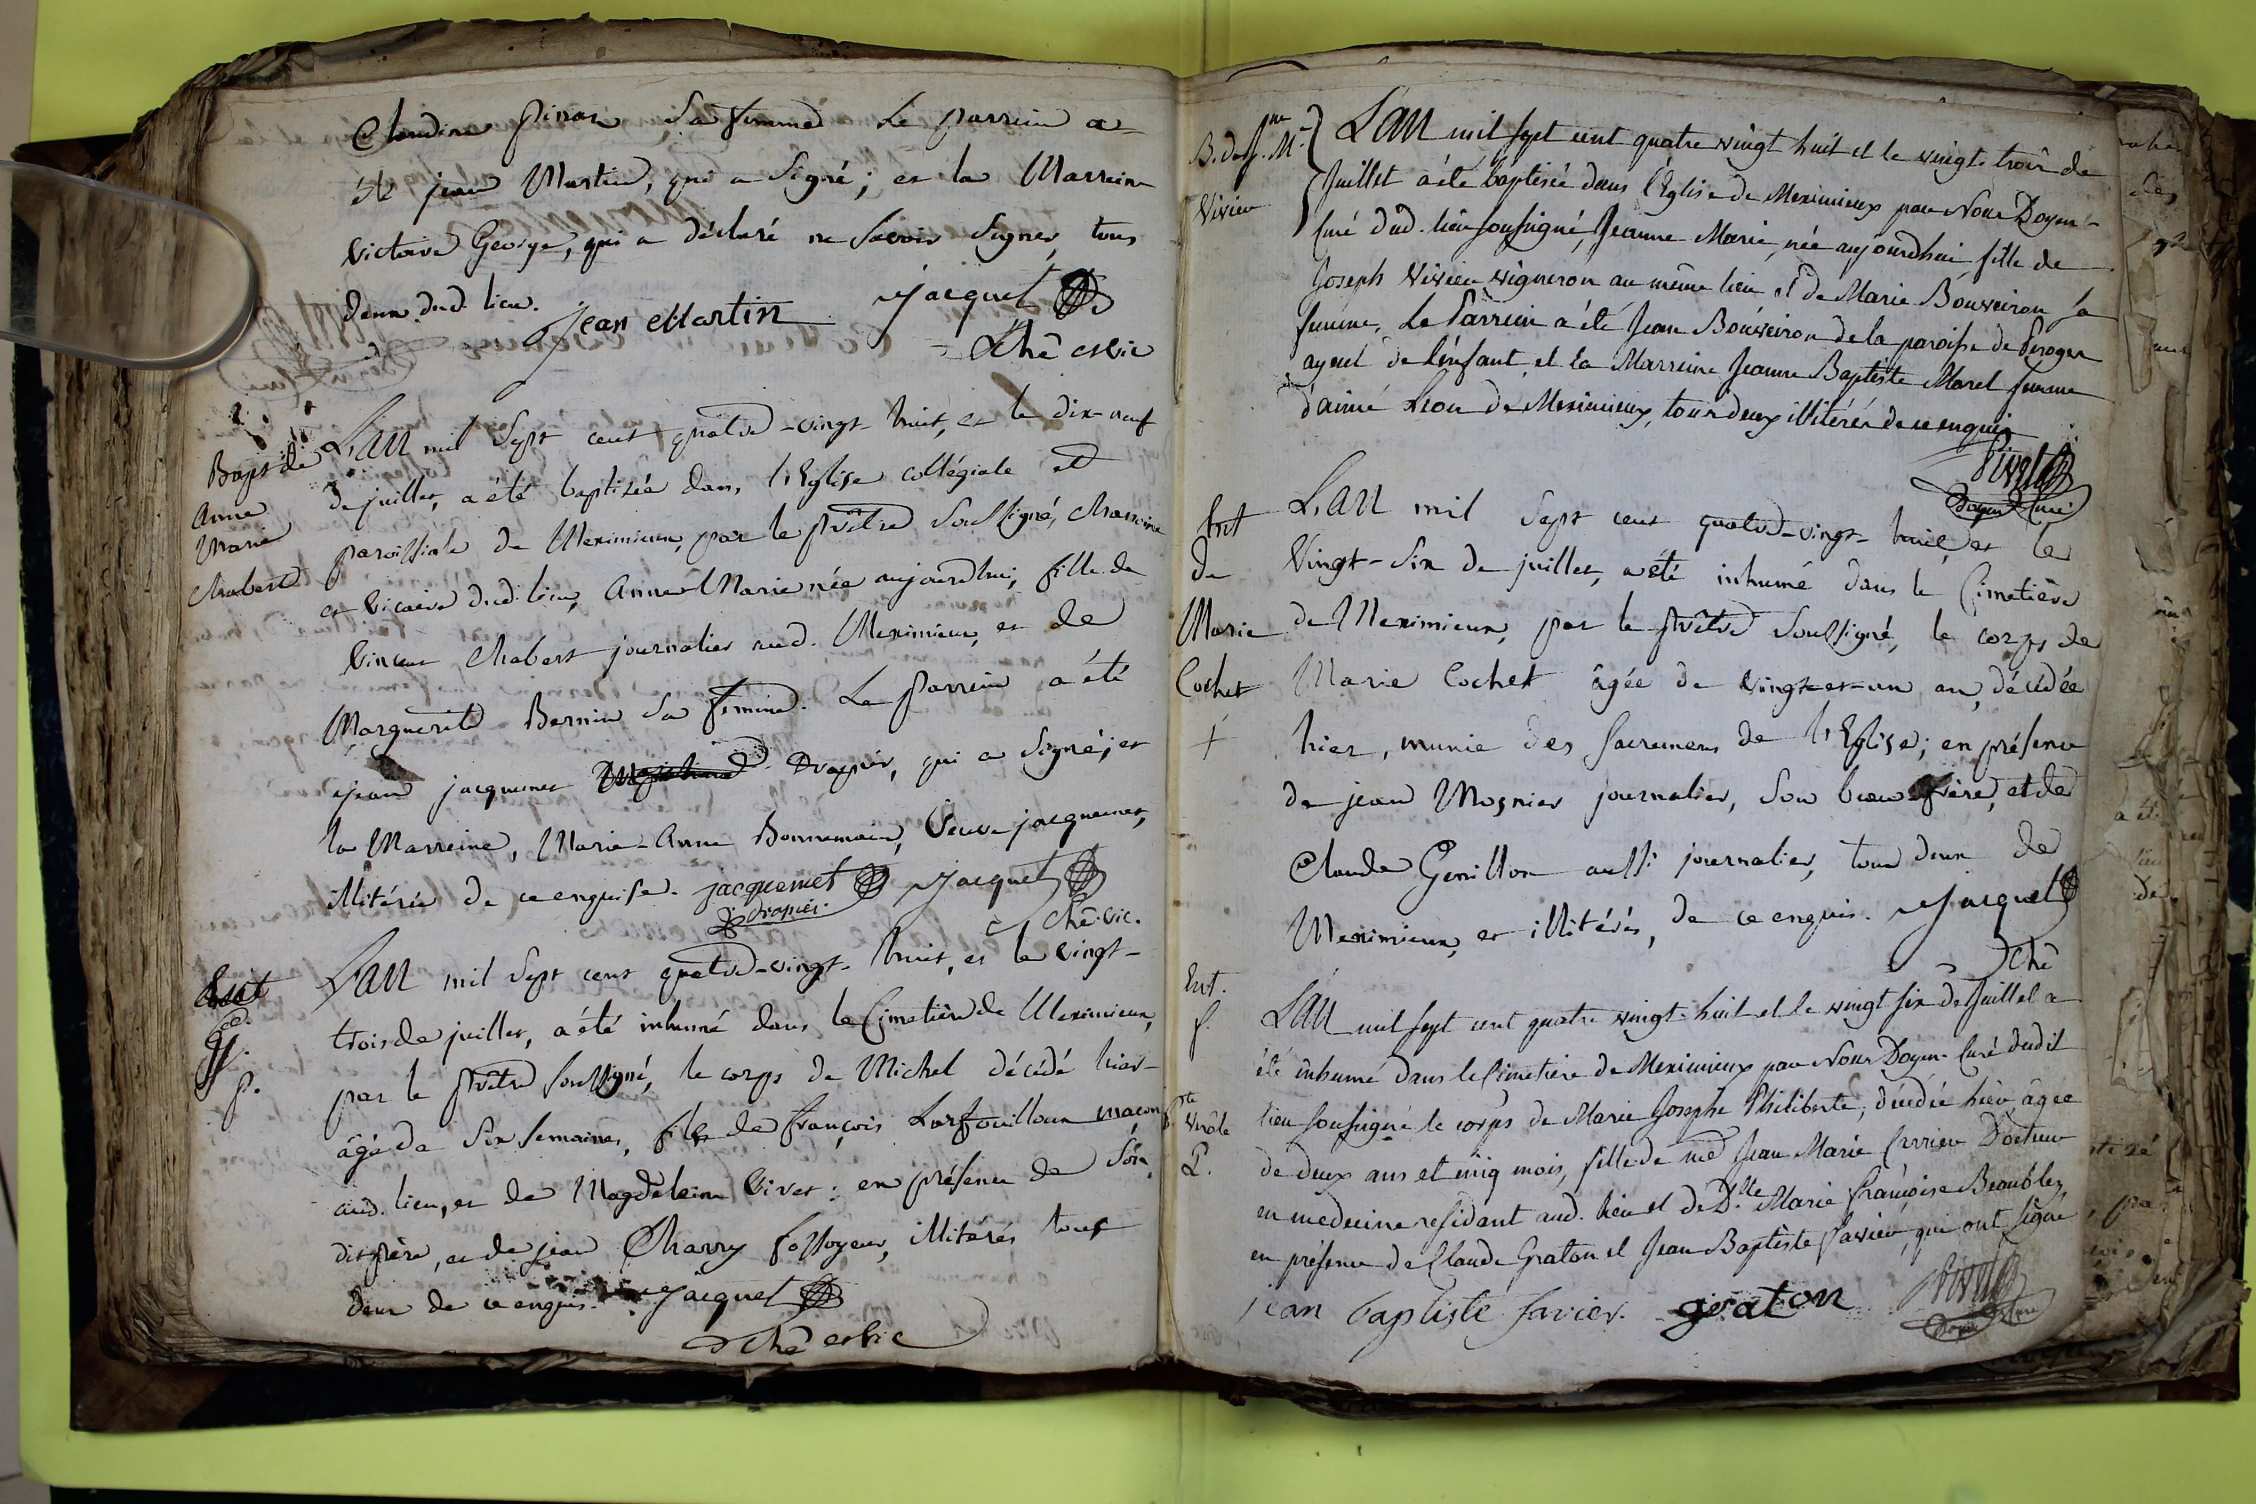 Claudine Pinat Sa femme Le parrein a
été jean Martin, qui a Signé; et la Marreine
Victoire George, qui a déclaré ne Savoir Signer, tous
deux dud. lieu.
jean Martin Jacquet
Chê et vic
Baptê de
Anne
Marie
Chabert
L'an mil Sept cent quatre-vingt-huit, et le dix-neuf
de juillet, a été baptisée dans l'Eglise collégiale et
paroissiale de Meximieux, par le prêtre Soussigné, chanoine
et Vicaire dud. lieu, Anne Marie née aujourdhui, fille de
Vincent Chabert journalier aud. Meximieux, et de
Marguerite Bernin Sa femme. Le Parrein a été
jean jacquemet drapier, qui a Signé; et
la Marreine, Marie-Anne Bonnemain, Veuve jacquemet,
illitérée de ce enquise. jacquemet Jacquet
drapier. Chê. vic.
Ent
p.
L'an mil Sept cent quatre-vingt-huit, et le vingt-
trois de juillet, a été inhumé dans le Cimetière de Meximieux,
par le prêtre soussigné, le corps de Michel décédé hier
âgé de Six Semaines, fils de françois Larfouilloux maçon
aud. lieu, et de Magdeleine Vivet: en présence de Son
dit père, et de jean Charry fossoyeur, illitérés tous
deux de ce enquis. Jacquet
Chê et vic
B. de Jne. Mie
Vivien
L'an mil sept cent quatre vingt huit et le vingt-trois de
Juillet a été baptisée dans l'Eglise de Meximieux par Nous Doyen-
Curé dud. lieu soussigné, Jeanne Marie, née aujourdhui fille de
Joseph Vivien vigneron au même lieu et de Marie Bouveiron sa
femme, Le Parrein a été Jean Bouveiron de la paroisse de Peroges
ayeul de l'enfant, et la Marreine Jeanne Baptiste Morel femme
d'aimé Leon de Meximieux, tous deux illitérés de ce enquis
Pivet
Doyen Curé
Ent
de
Marie
Cochet
+
L'an mil Sept cent quatre-vingt-huit, et le
Vingt-Six de juillet, a été inhumé dans le Cimetière
de Meximieux, par le prêtre Soussigné, le corps de
Marie Cochet âgée de vingt-et-un an, décédée
hier, munie des Sacremens de l'Eglise; en présence
de jean Mosnier journalier, Son beau-frère, et de
Claude Genillon aussi journalier, tous deux de
Meximieux, et illitérés, de ce enquis. Jacquet
Chê
Ent.
L'an mil sept cent quatre vingt-huit et le vingt six de Juillet a
été inhumé dans le Cimetière de Meximieux par Nous Doyen-Curé dudit
lieu soussigné le corps de Marie Josephe Philiberte, décédée hier âgée
de deux ans et cinq mois, fille de me Jean Marie Docteur
en medecine residant aud. lieu et de Dlle Marie françoise Beaublez,
en présence de Claude Graton et Jean Baptiste favier, qui ont signé
jean baptiste favier. graton Pivet
Doyen Curé